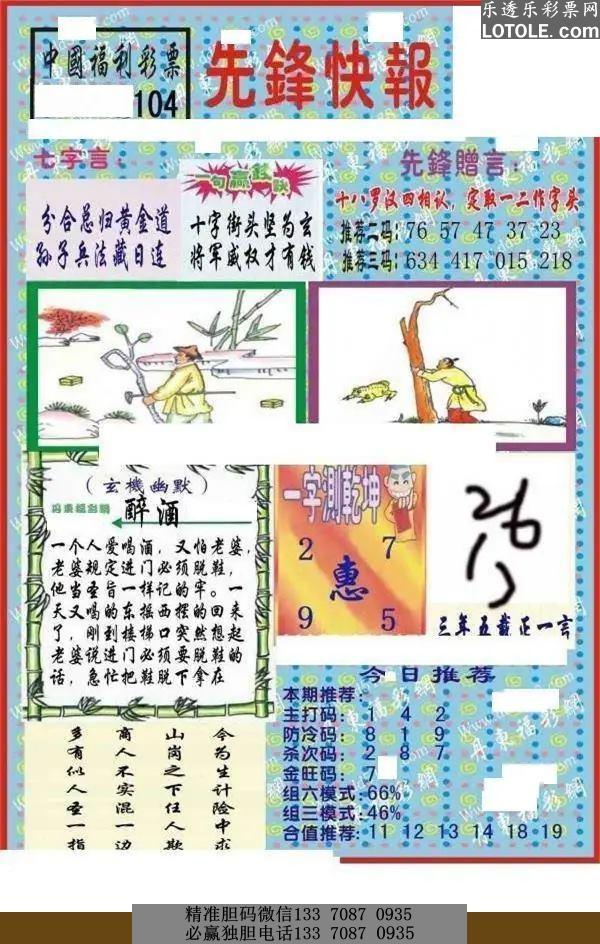 乐透乐彩票网
LOTOLE.COM
中國福利彩票
104
先鋒快報
七字言：
分合总归黄金道
孙子兵法藏日连
一句赢
十字街头坚为玄
将军威权才有钱
先鋒贈言：
十八罗汉四相认，定取一二作字头
推荐二码: 76 57 47 37 23
推荐三码: 634 417 015 218
（玄機幽默）
醉酒
一个人爱喝酒，又怕老婆，
老婆规定进门必须脱鞋，
他当圣旨一样记的牢。一
天又喝的东摇西摆的回来
了，刚到接梯口突然想起
老婆说进门必须要脱鞋的
话，急忙把鞋脱下拿在
一字測乾坤
2 7
惠
9 5
三年五载正一言
今日推荐
本期推荐:
主打码: 1 4 2
防冷码: 8 1 9
杀次码: 2 8 7
金旺码: 7
组六模式: 66%
组三模式: 46%
合值推荐: 11 12 13 14 18 19
令为生计险中求
山岗之下任人欺
商人不实混一边
多有似人圣一指
精准胆码微信133 7087 0935
必赢独胆电话133 7087 0935